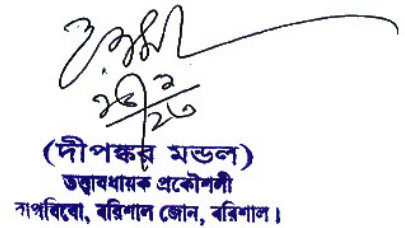 (দীপঙ্কর মন্ডল)
তত্ত্বাবধায়ক প্রকৌশলী
বাপবিবো, বরিশাল জোন, বরিশাল।